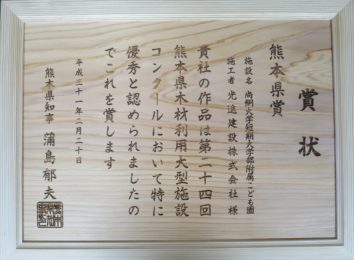 賞状
熊本県賞
施設名 尚絅大学短期大学部附属こども園
施工者 光進建設株式会社 様
貴社の作品は第二十四回
熊本県木材利用大型施設
コンクールにおいて特に
優秀と認められましたの
でこれを賞します
平成三十一年二月二十日
熊本県知事 蒲島郁夫